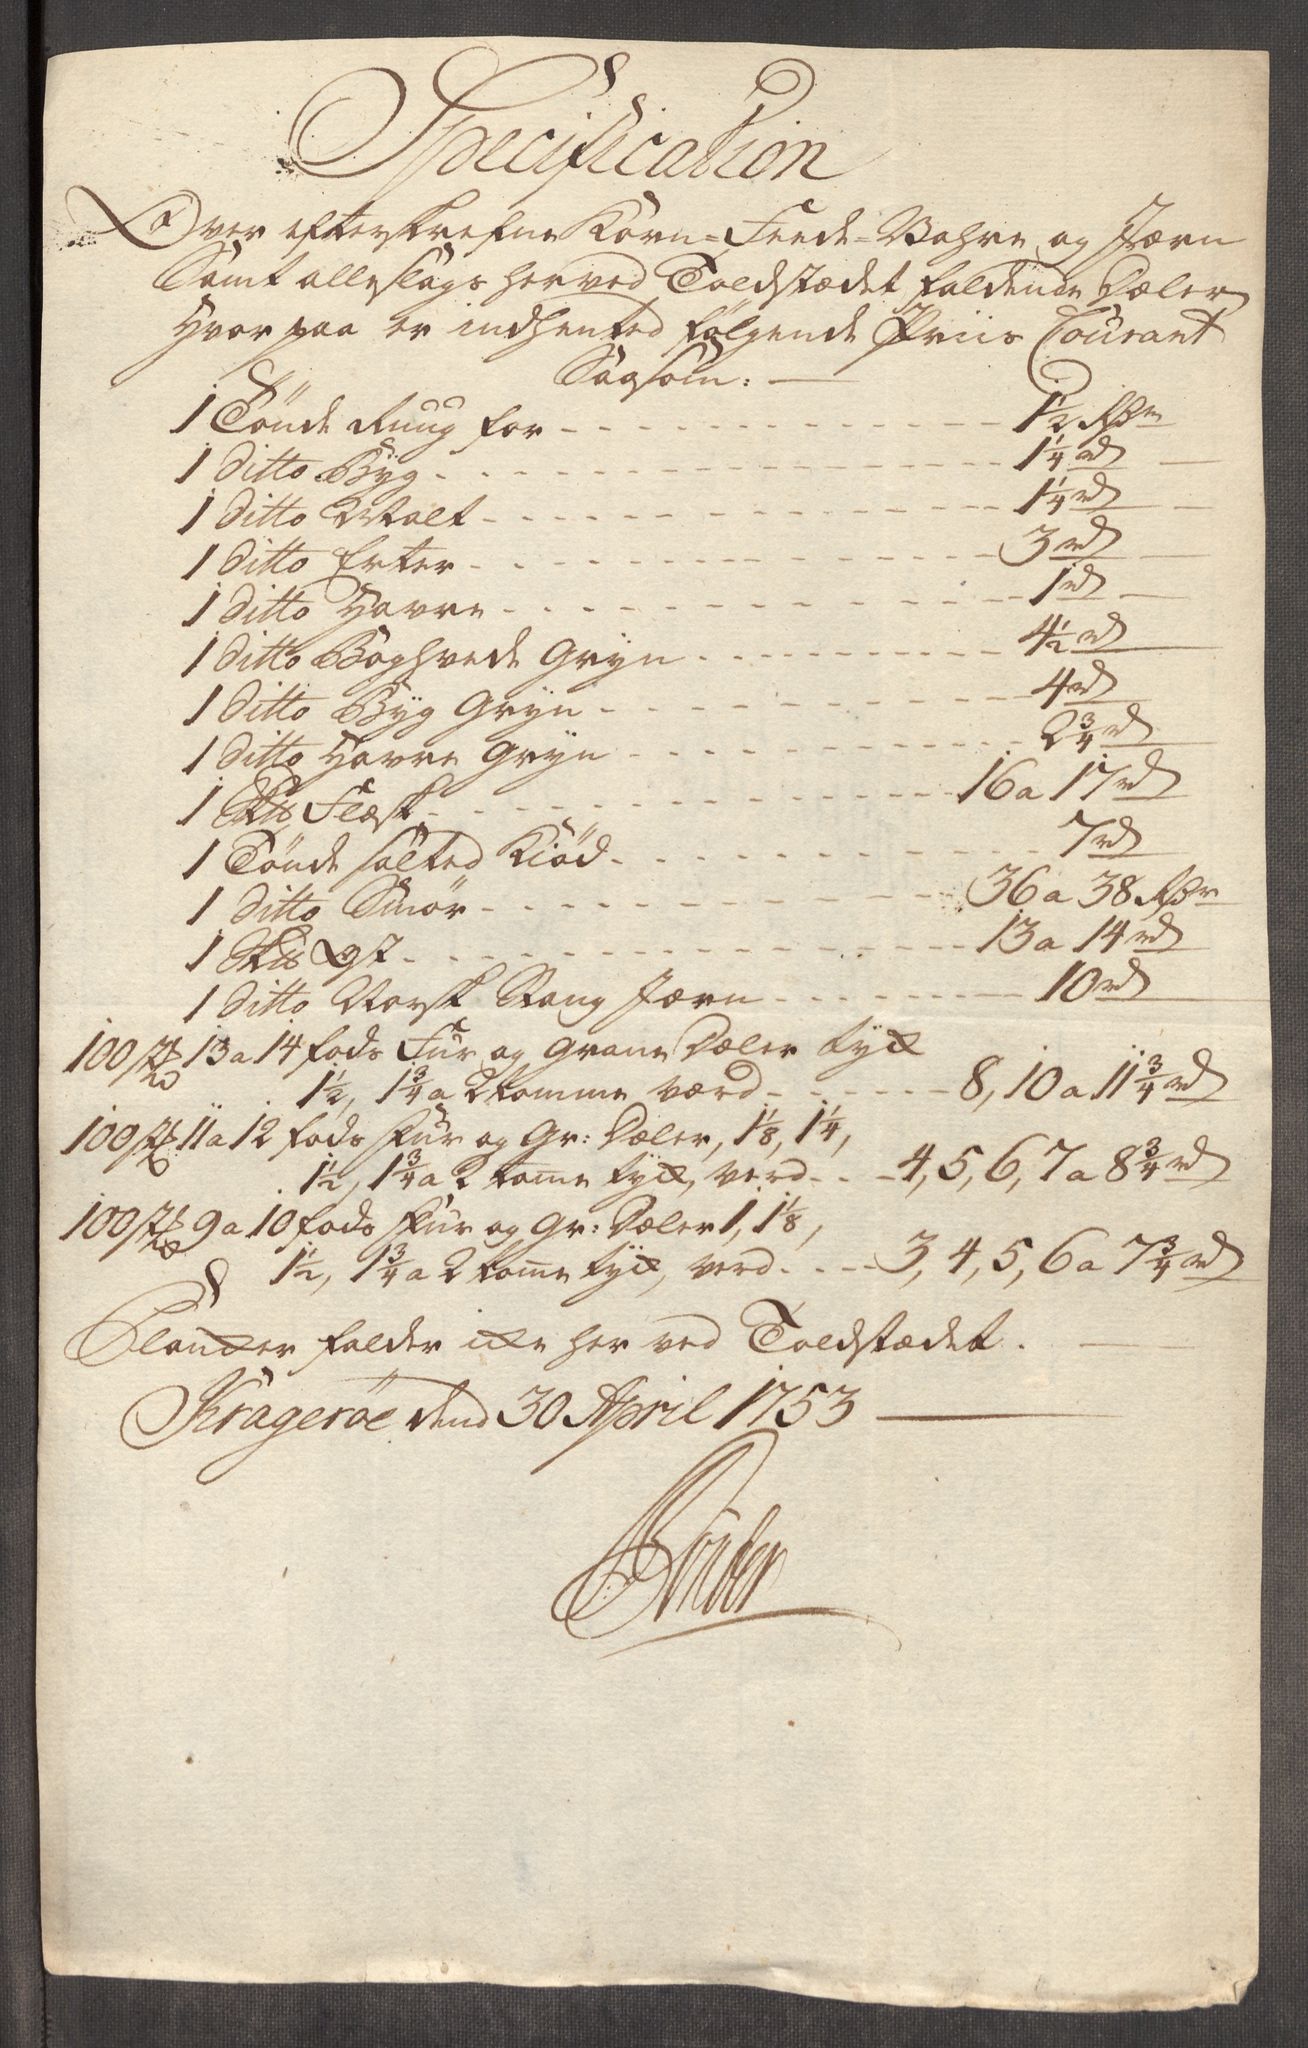 Specification
Over efterskrefne Korn= Feede=Vahre og Jærn
Samt alle slags her ved Toldstædet faldende Dæler
Hvor paa er indhented følgende Priis Courant
Saasom: —
1 Tønde Ruug for - - - 1½ Rdr
1 ditto Byg - - - 1¼ rd
1 ditto Malt - - - 1¼ rd
1 ditto Erter - - - 3 rd
1 ditto Havre - - - 1 rd
1 ditto Boghvede Gryn - - - 4½ rd
1 ditto Byg Gryn - - - 4 rd
1 ditto Havre Gryn - - - 2¾ rd
1 Flæsk - - - 16 a 17 rd
1 Tønde salted Kiød - - - 7 rd
1 ditto Smør - - - 36 a 38 Rdr
1 Ost - - - 13 a 14 rd
1 ditto Norsk Stang Jærn - - - 10 rd
100 13 a 14 fods Fur og Grane Dæler tyk
1½, 1¾ a 2 tomme værd - - - 8, 10 a 11¾ rd
100 11 a 12 fods Fur og Gr: Dæler, 1⅛, 1¼,
1½, 1¾ a 2 tome tyk, verd - - - 4, 5, 6, 7 a 8¾ rd
100 9 a 10 fods Fur og Gr: Dæler 1, 1⅛,
1½, 1¾ a 2 tome tyk, verd - - - 3, 4, 5, 6 a 7¾ rd
Planker falder ikke her ved Toldstædet. —
Kragerøe dend 30 April 1753 —